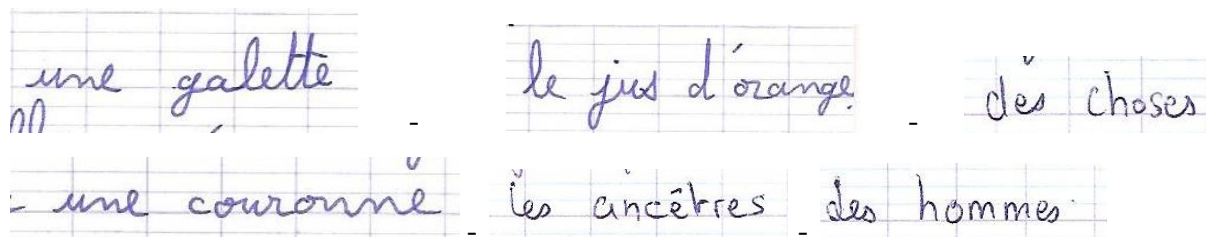 une galette - le jus d'orange. - des choses
- une couronne - les ancêtres - des hommes